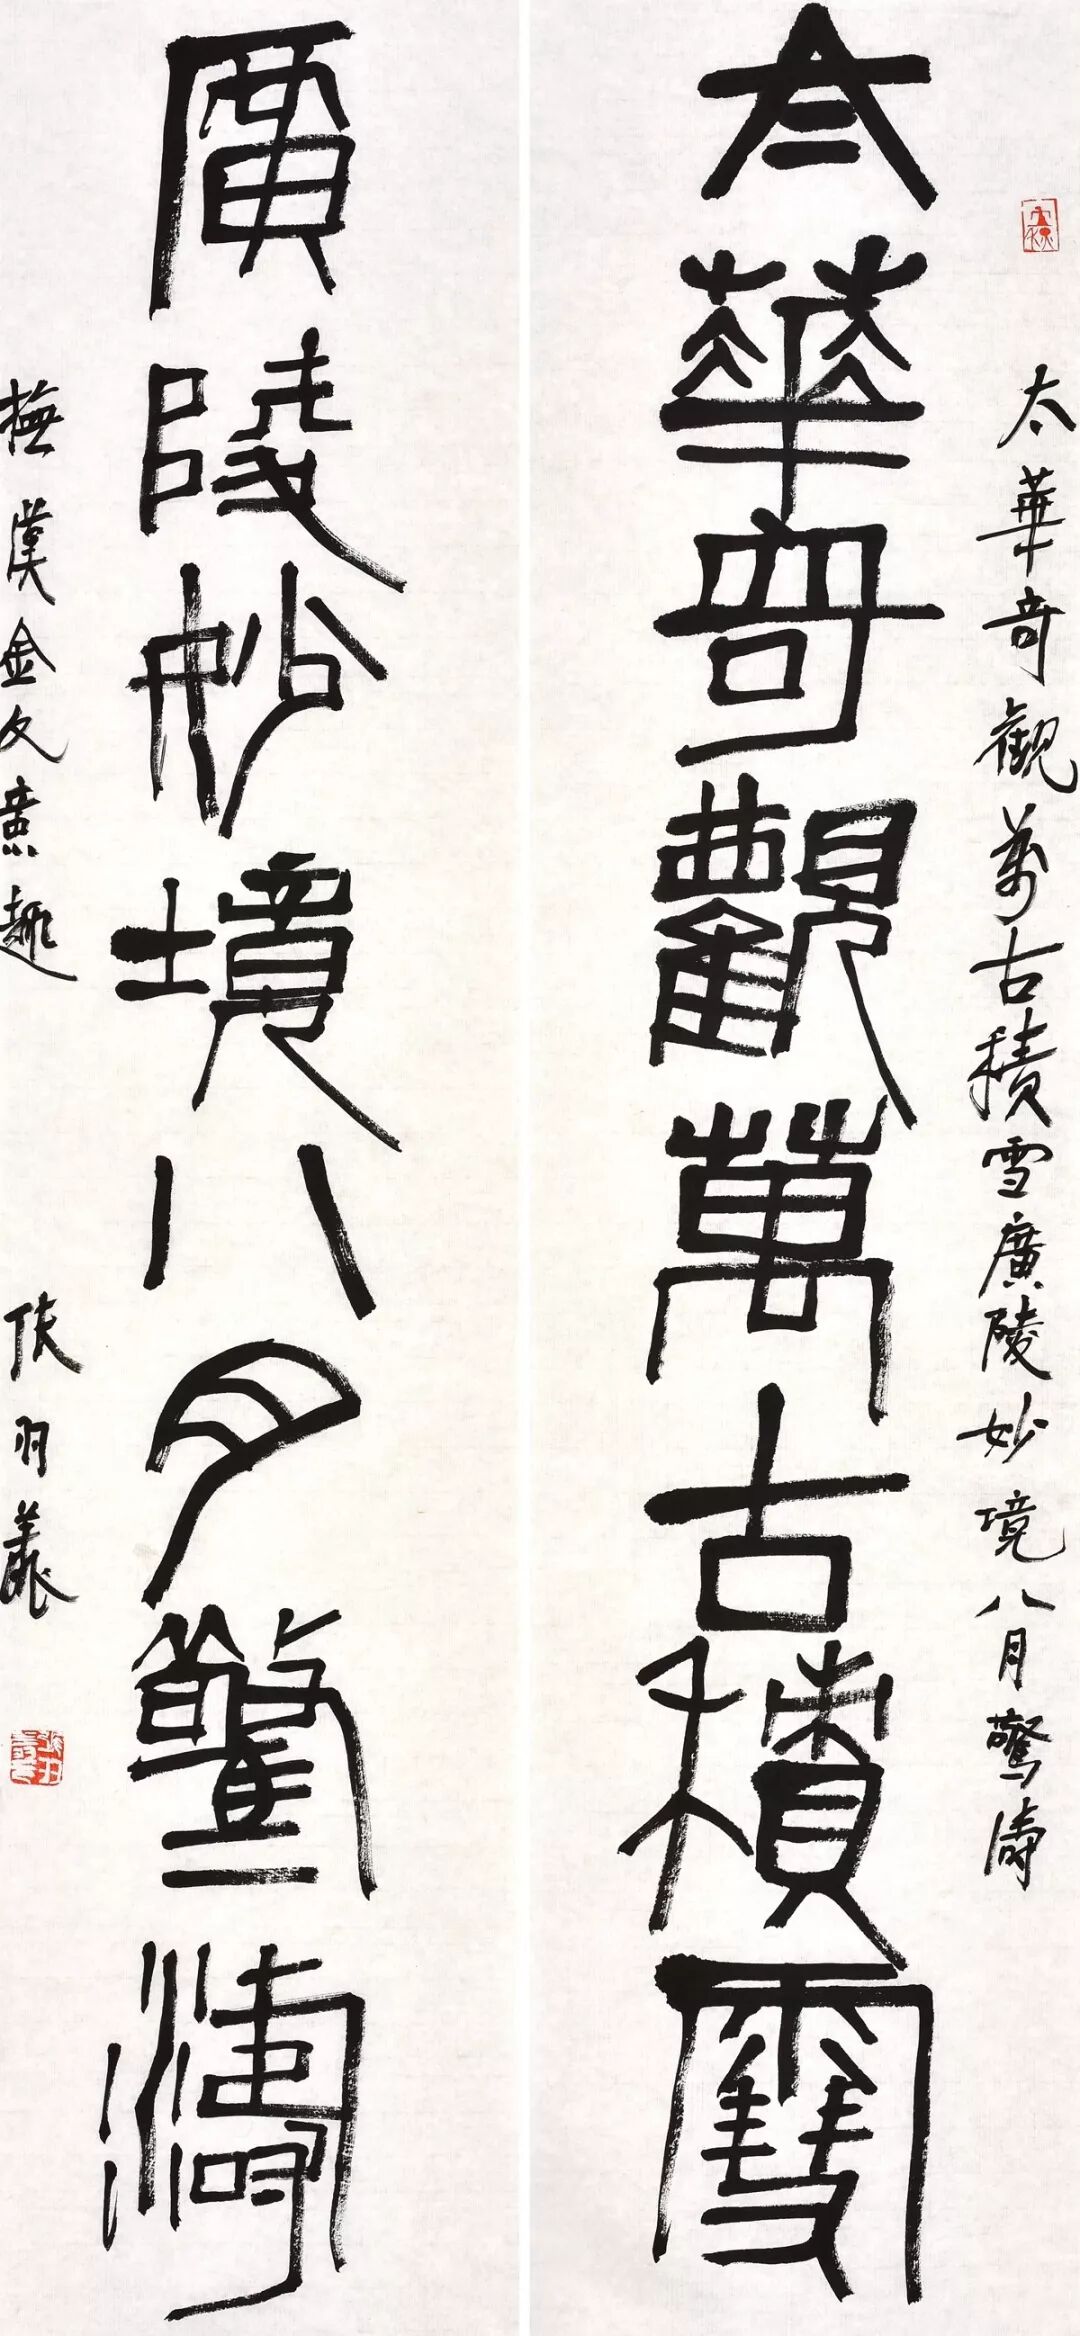 太華奇觀萬古積雪廣陵妙境八月驚濤
太華奇觀萬古積雪
廣陵妙境八月驚濤
撫漢金文意趣
羽翼